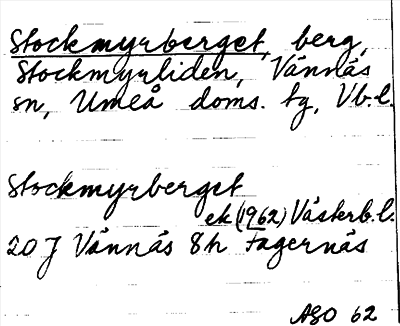 Stockmyrberget, berg,
Stockmyrliden, Vännäs
sn, Umeå doms. tg, Vb.l.
Stockmyrberget
ek (1962) Västerb.l.
20 J Vännäs 8h Fagernäs
ASO 62